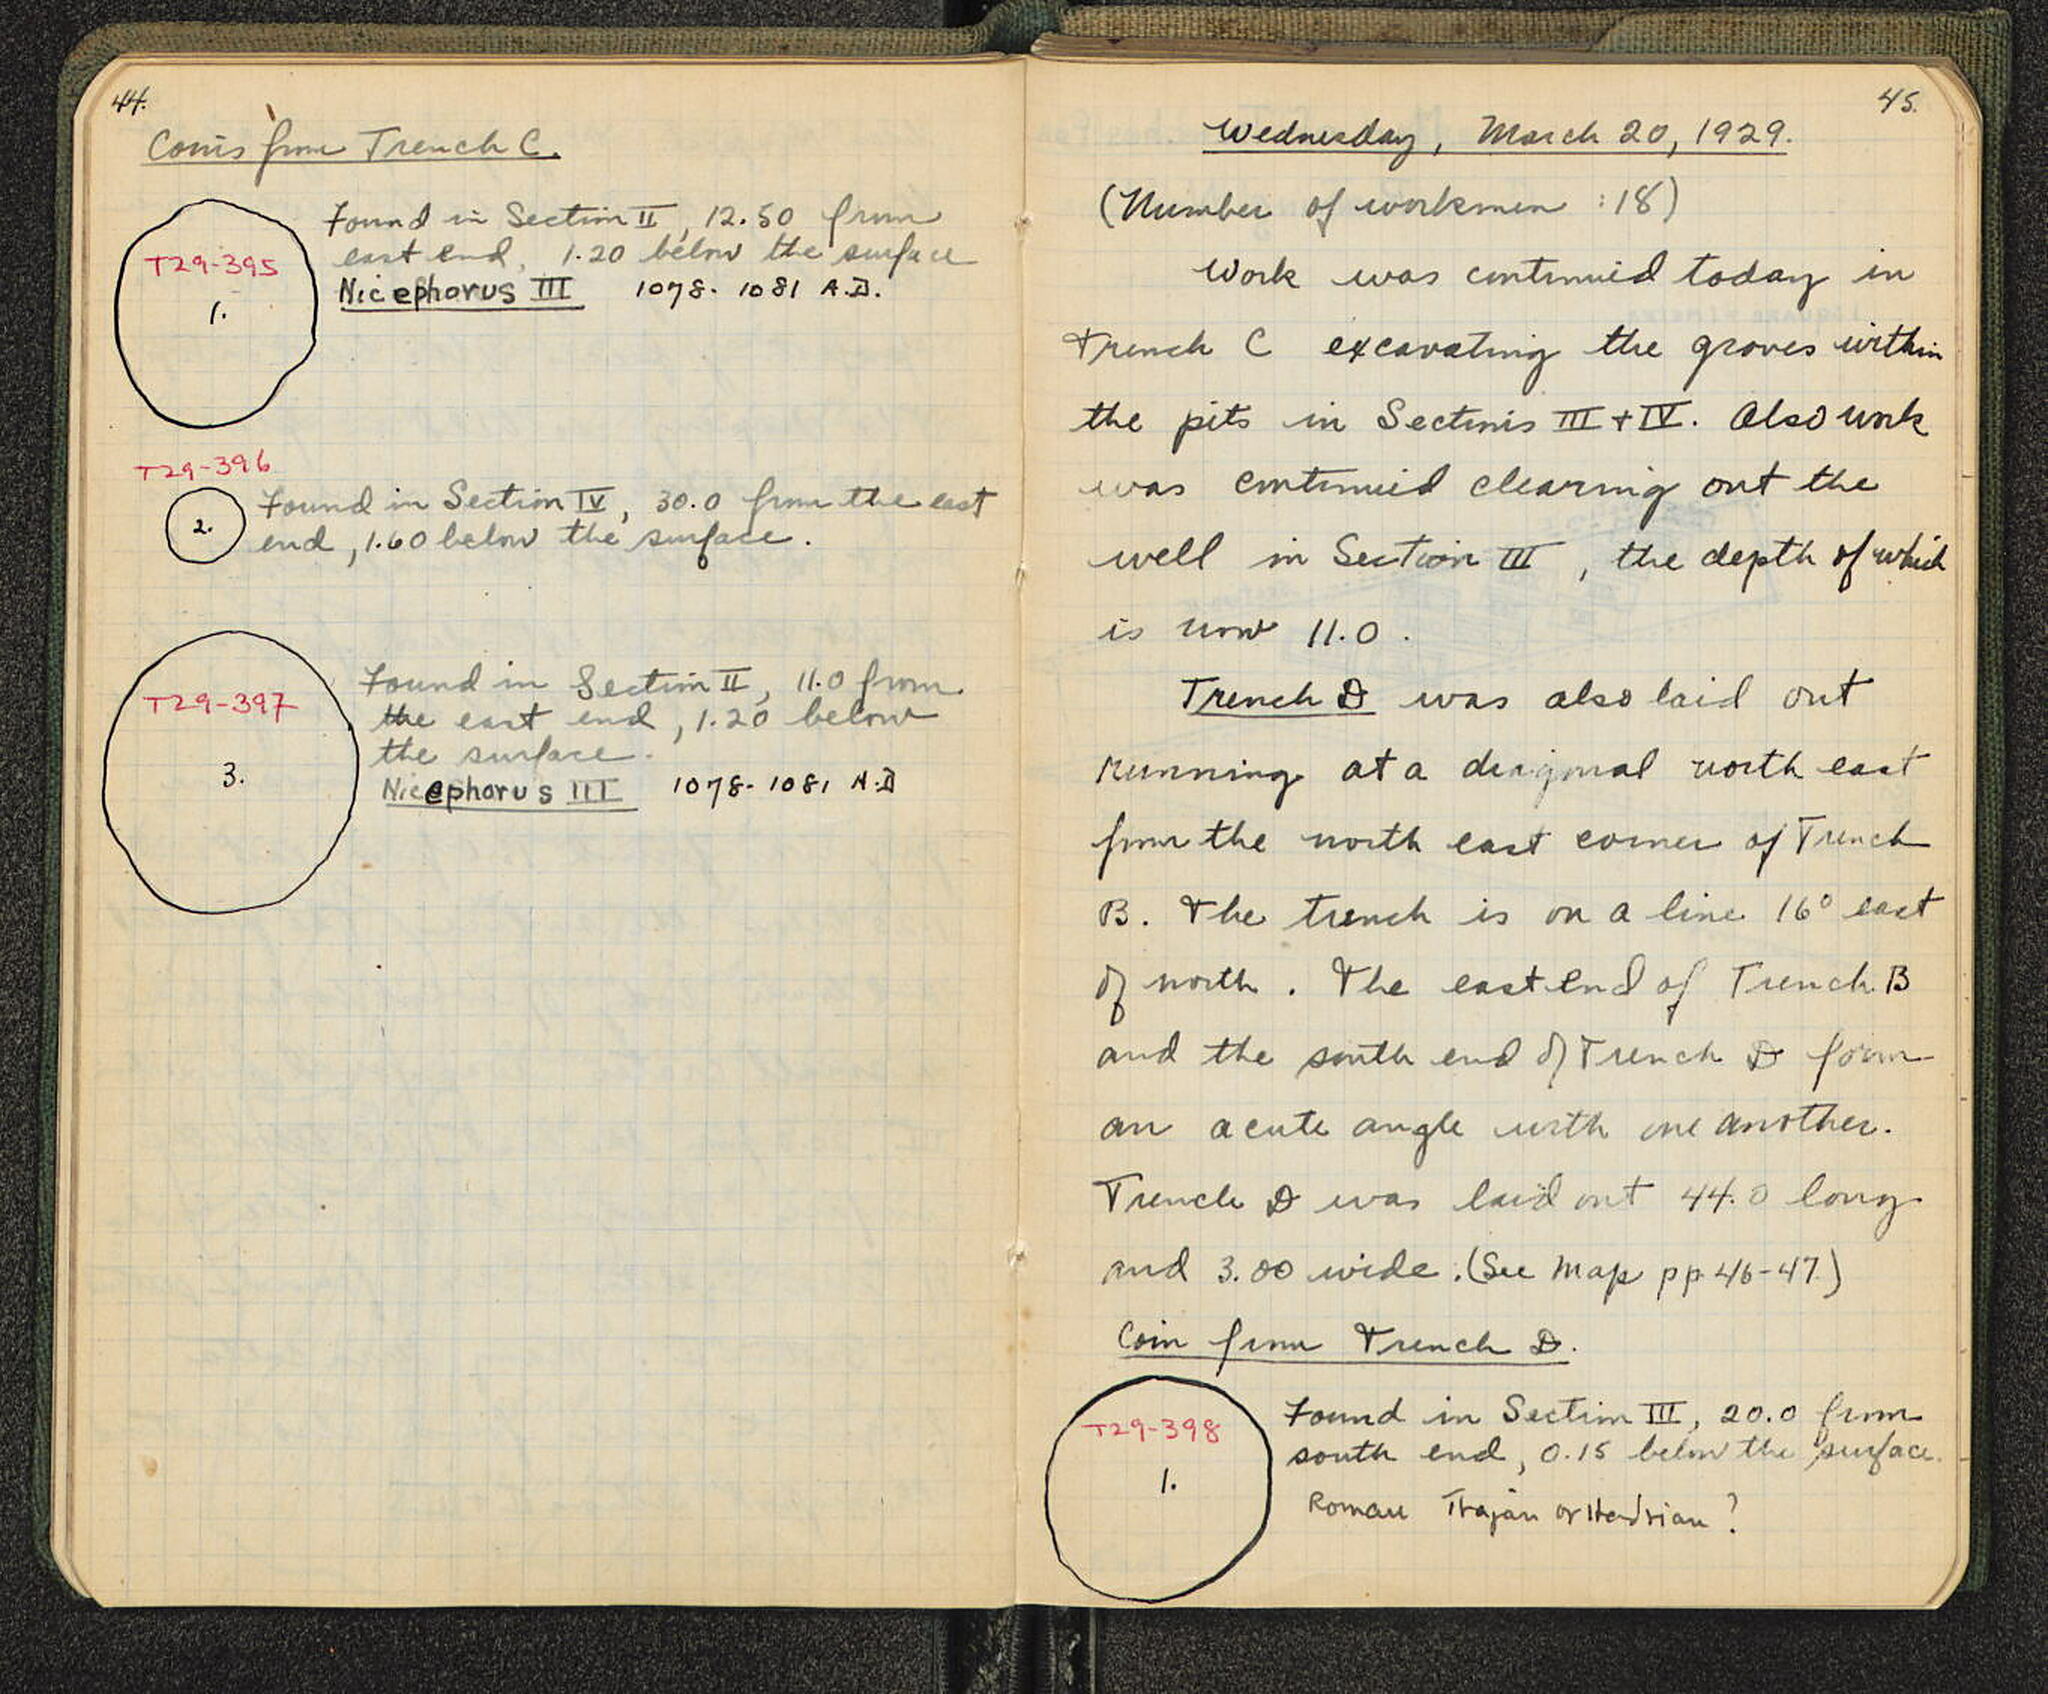 44.
Coins from Trench C.
T29-395
1.
Found in Section II, 12.50 from
east end, 1.20 below the surface
Nicephorus III 1078-1081 A.D.
T29-396
2.
Found in Section IV, 30.0 from the east
end, 1.60 below the surface.
T29-397
3.
Found in Section II, 11.0 from
the east end, 1.20 below
the surface.
Nicephorus III 1078-1081 A.D
45.
Wednesday, March 20, 1929.
(Number of workmen : 18)
Work was continued today in
Trench C excavating the graves within
the pits in Sections III + IV. Also work
was continued clearing out the
well in Section III, the depth of which
is now 11.0.
Trench D was also laid out
running at a diagonal north east
from the north east corner of Trench
B. The trench is on a line 16° east
of north. The east end of Trench B
and the south end of Trench D form
an acute angle with one another.
Trench D was laid out 44.0 long
and 3.00 wide. (See Map pp. 46-47.)
Coin from Trench D.
T29-398
1.
Found in Section III, 20.0 from
south end, 0.15 below the surface.
Roman Trajan or Hadrian?